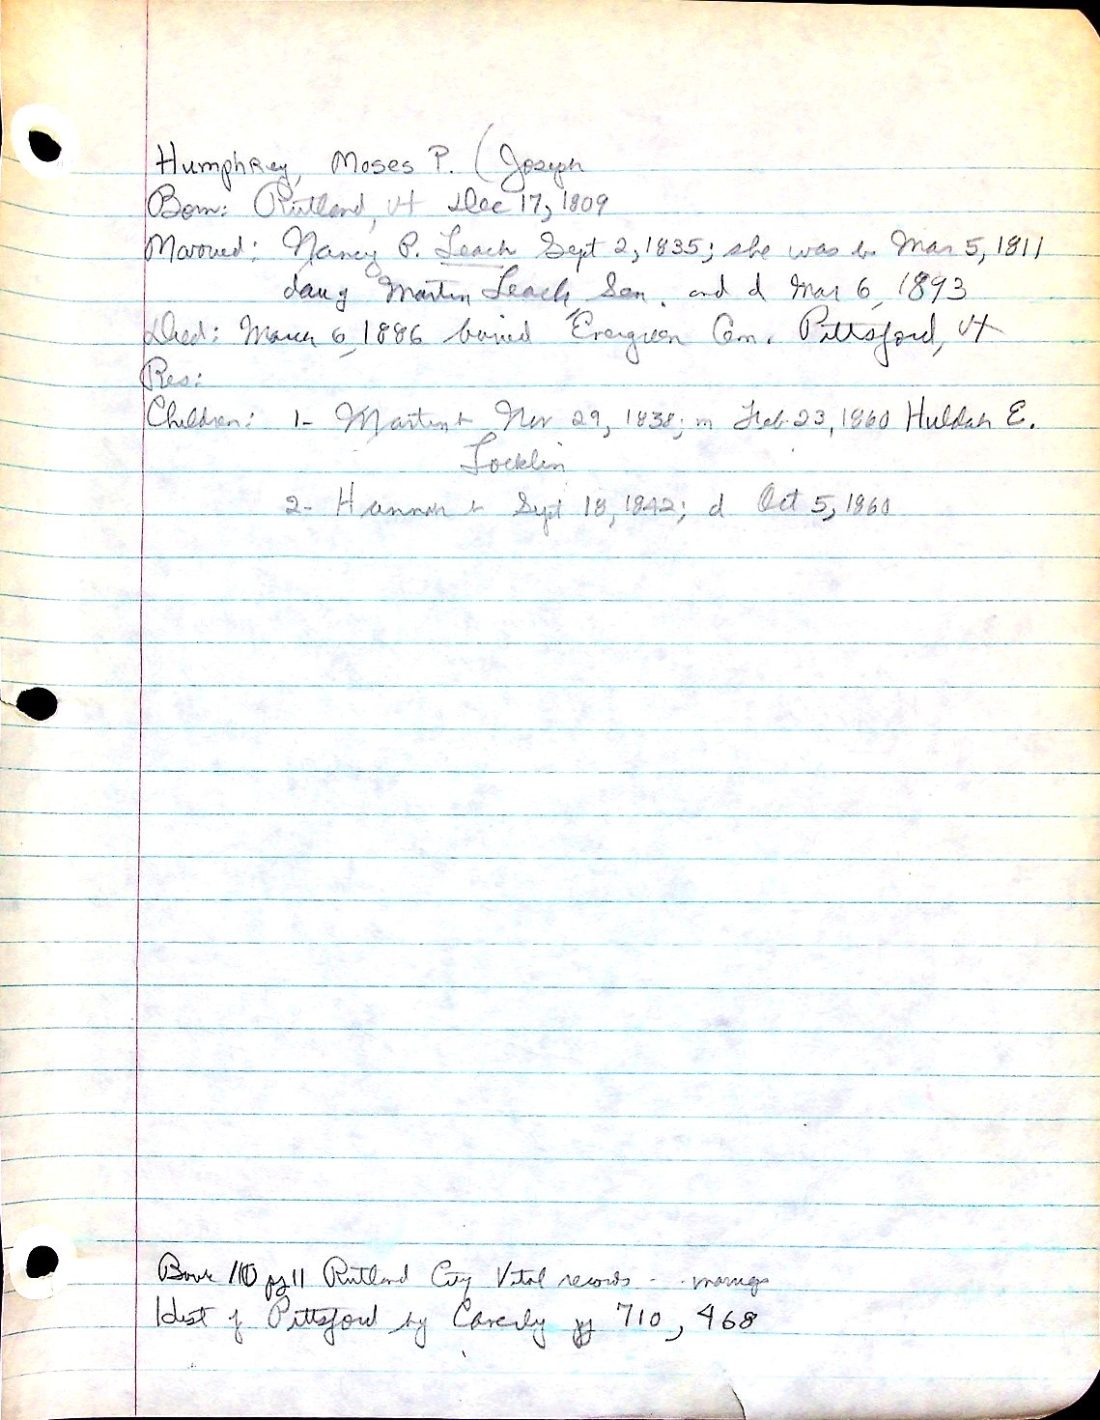 Humphrey, Moses P. (Joseph
Born: Rutland, Vt Dec 17, 1809
Married: Nancy P. Leach Sept 2, 1835; she was b. Mar 5, 1811
daug Martin Leach, Sen. and d Mar 6, 1893
Died: March 6, 1886 buried Evergreen Cem. Pittsford, Vt
Res:
Children: 1- Martin b Nov 29, 1838; m Feb 23, 1860 Huldah E.
Locklin
2- Hannah b Sept 18, 1842; d Oct 5, 1860
Book 110 pg 11 Rutland City Vital records - - marriage
Hist of Pittsford by Caverly pg 710, 468